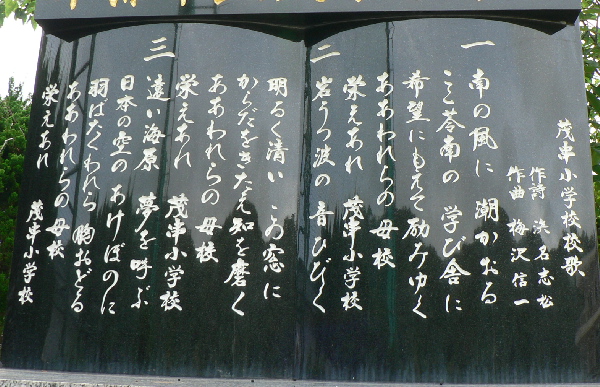 茂串小学校校歌
作詩 浜名志松
作曲 梅沢信一
一
南の風に 潮かおる
こゝ苓南の 学び舎に
希望にもえて励みゆく
ああわれらの母校
栄えあれ 茂串小学校
二
岩うつ波の 音ひびく
明るく清い この窓に
からだをきたえ知を磨く
ああわれらの母校
栄えあれ 茂串小学校
三
遠い海原 夢を呼ぶ
日本の空の あけぼのに
羽ばたくわれら 胸おどる
ああわれらの母校
栄えあれ 茂串小学校